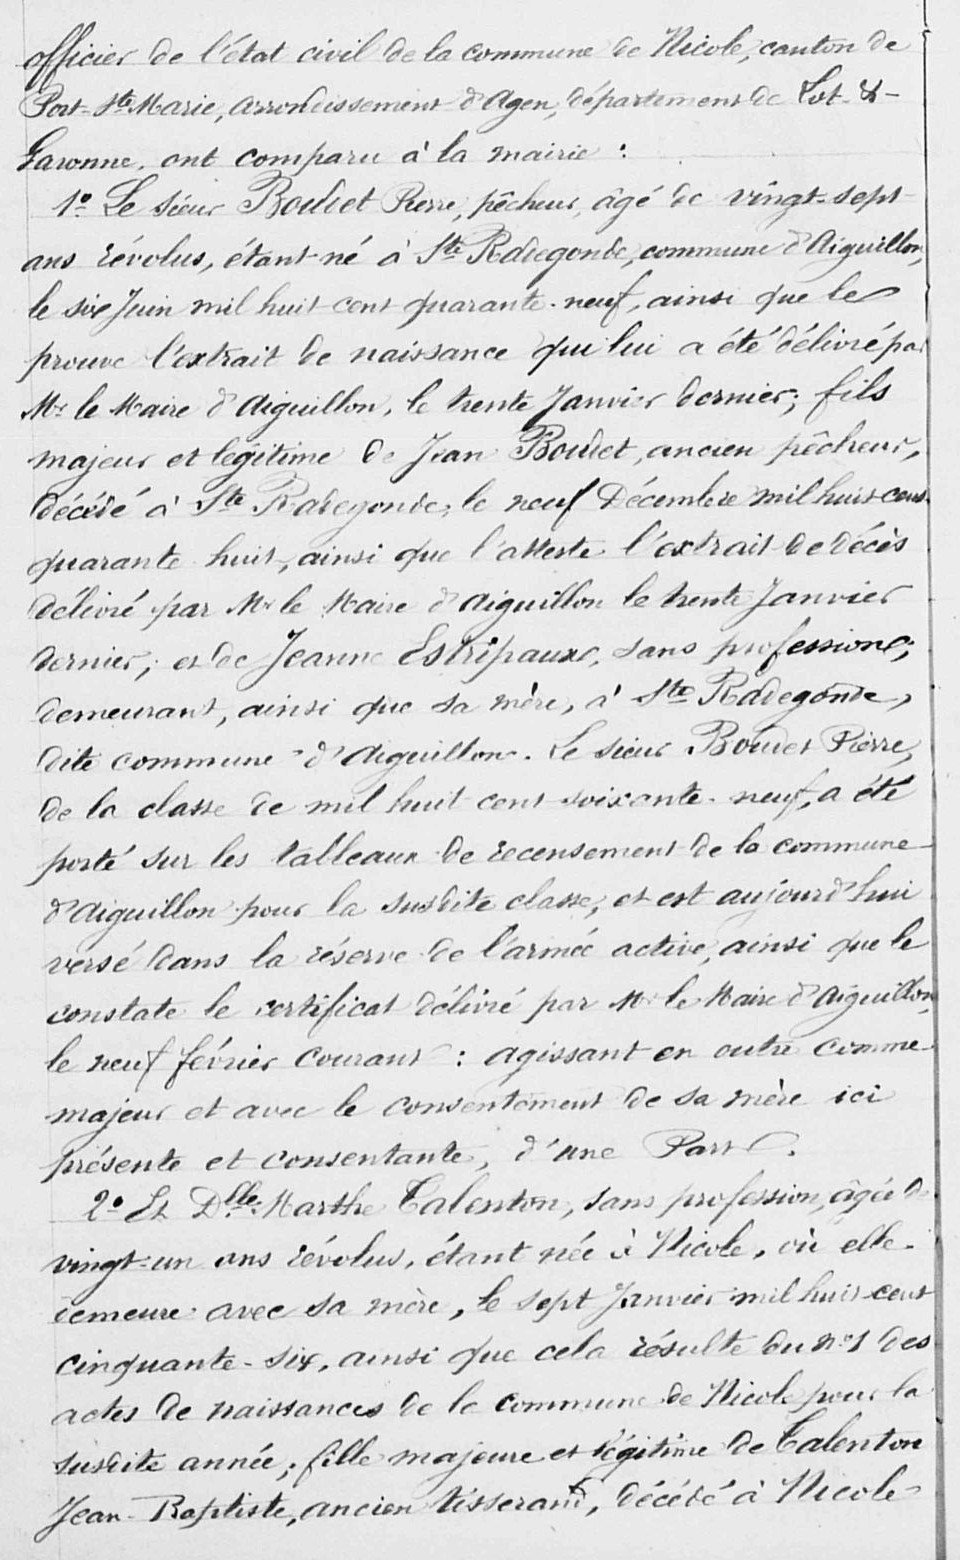 officier de l'état civil de la commune de Nicole, canton de
Port-Ste Marie, arrondissement d'Agen, département de Lot-&-
Garonne, ont comparu à la mairie :
1º Le sieur Boudet Pierre, pêcheur, âgé de vingt-sept
ans révolus, étant né à Ste Radegonde, commune d'Aiguillon,
le six Juin mil huit cent quarante-neuf, ainsi que le
prouve l'extrait de naissance qui lui a été délivré par
Mr le Maire d'Aiguillon, le trente Janvier dernier; fils
majeur et légitime de Jean Boudet, ancien pêcheur,
décédé à Ste Radegonde, le neuf Décembre mil huit cent
quarante huit, ainsi que l'atteste l'extrait de décès
délivré par Mr le Maire d'Aiguillon le trente Janvier
dernier; et de Jeanne Estripaux, sans profession;
demeurant, ainsi que sa mère, à Ste Radegonde,
dite commune d'Aiguillon. Le sieur Boudet Pierre,
de la classe de mil huit cent soixante-neuf, a été
porté sur les tableaux de recensement de la commune
d'Aiguillon pour la susdite classe, et est aujourd'hui
versé dans la réserve de l'armée active, ainsi que le
constate le certificat délivré par Mr le Maire d'Aiguillon,
le neuf février courant : agissant en outre comme
majeur et avec le consentement de sa mère ici
présente et consentante, d'une Part.
2º Et Dlle Marthe Talenton, sans profession, âgée de
vingt-un ans révolus, étant née à Nicole, où elle
demeure avec sa mère, le sept Janvier mil huit cent
cinquante-six, ainsi que cela résulte du nº 1 des
actes de naissances de la commune de Nicole pour la
susdite année; fille majeure et légitime de Talenton
Jean-Baptiste, ancien tisserand, décédé à Nicole